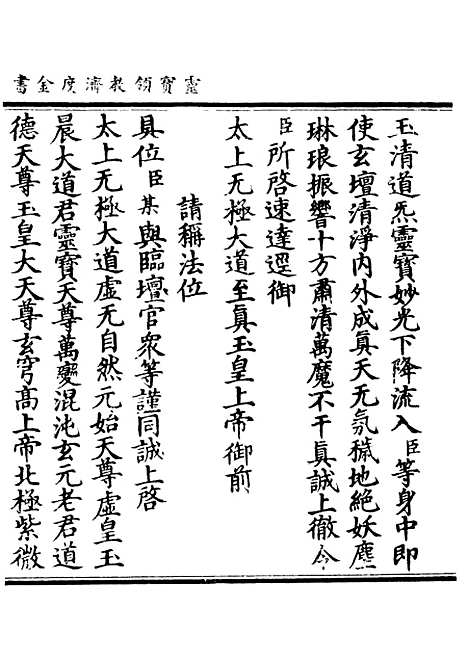 靈寶領教濟度金書
玉清道炁靈寶妙光下降流入臣等身中即
使玄壇清淨內外成真天无氛穢地絶妖塵
琳琅振響十方肅清萬魔不干真誠上徹今
臣所啓速達逕御
太上无極大道至真玉皇上帝御前
請稱法位
具位臣某與臨壇官衆等謹同誠上啓
太上无極大道虛无自然元始天尊虛皇玉
晨大道君靈寶天尊萬變混沌玄元老君道
德天尊玉皇大天尊玄穹高上帝北極紫微